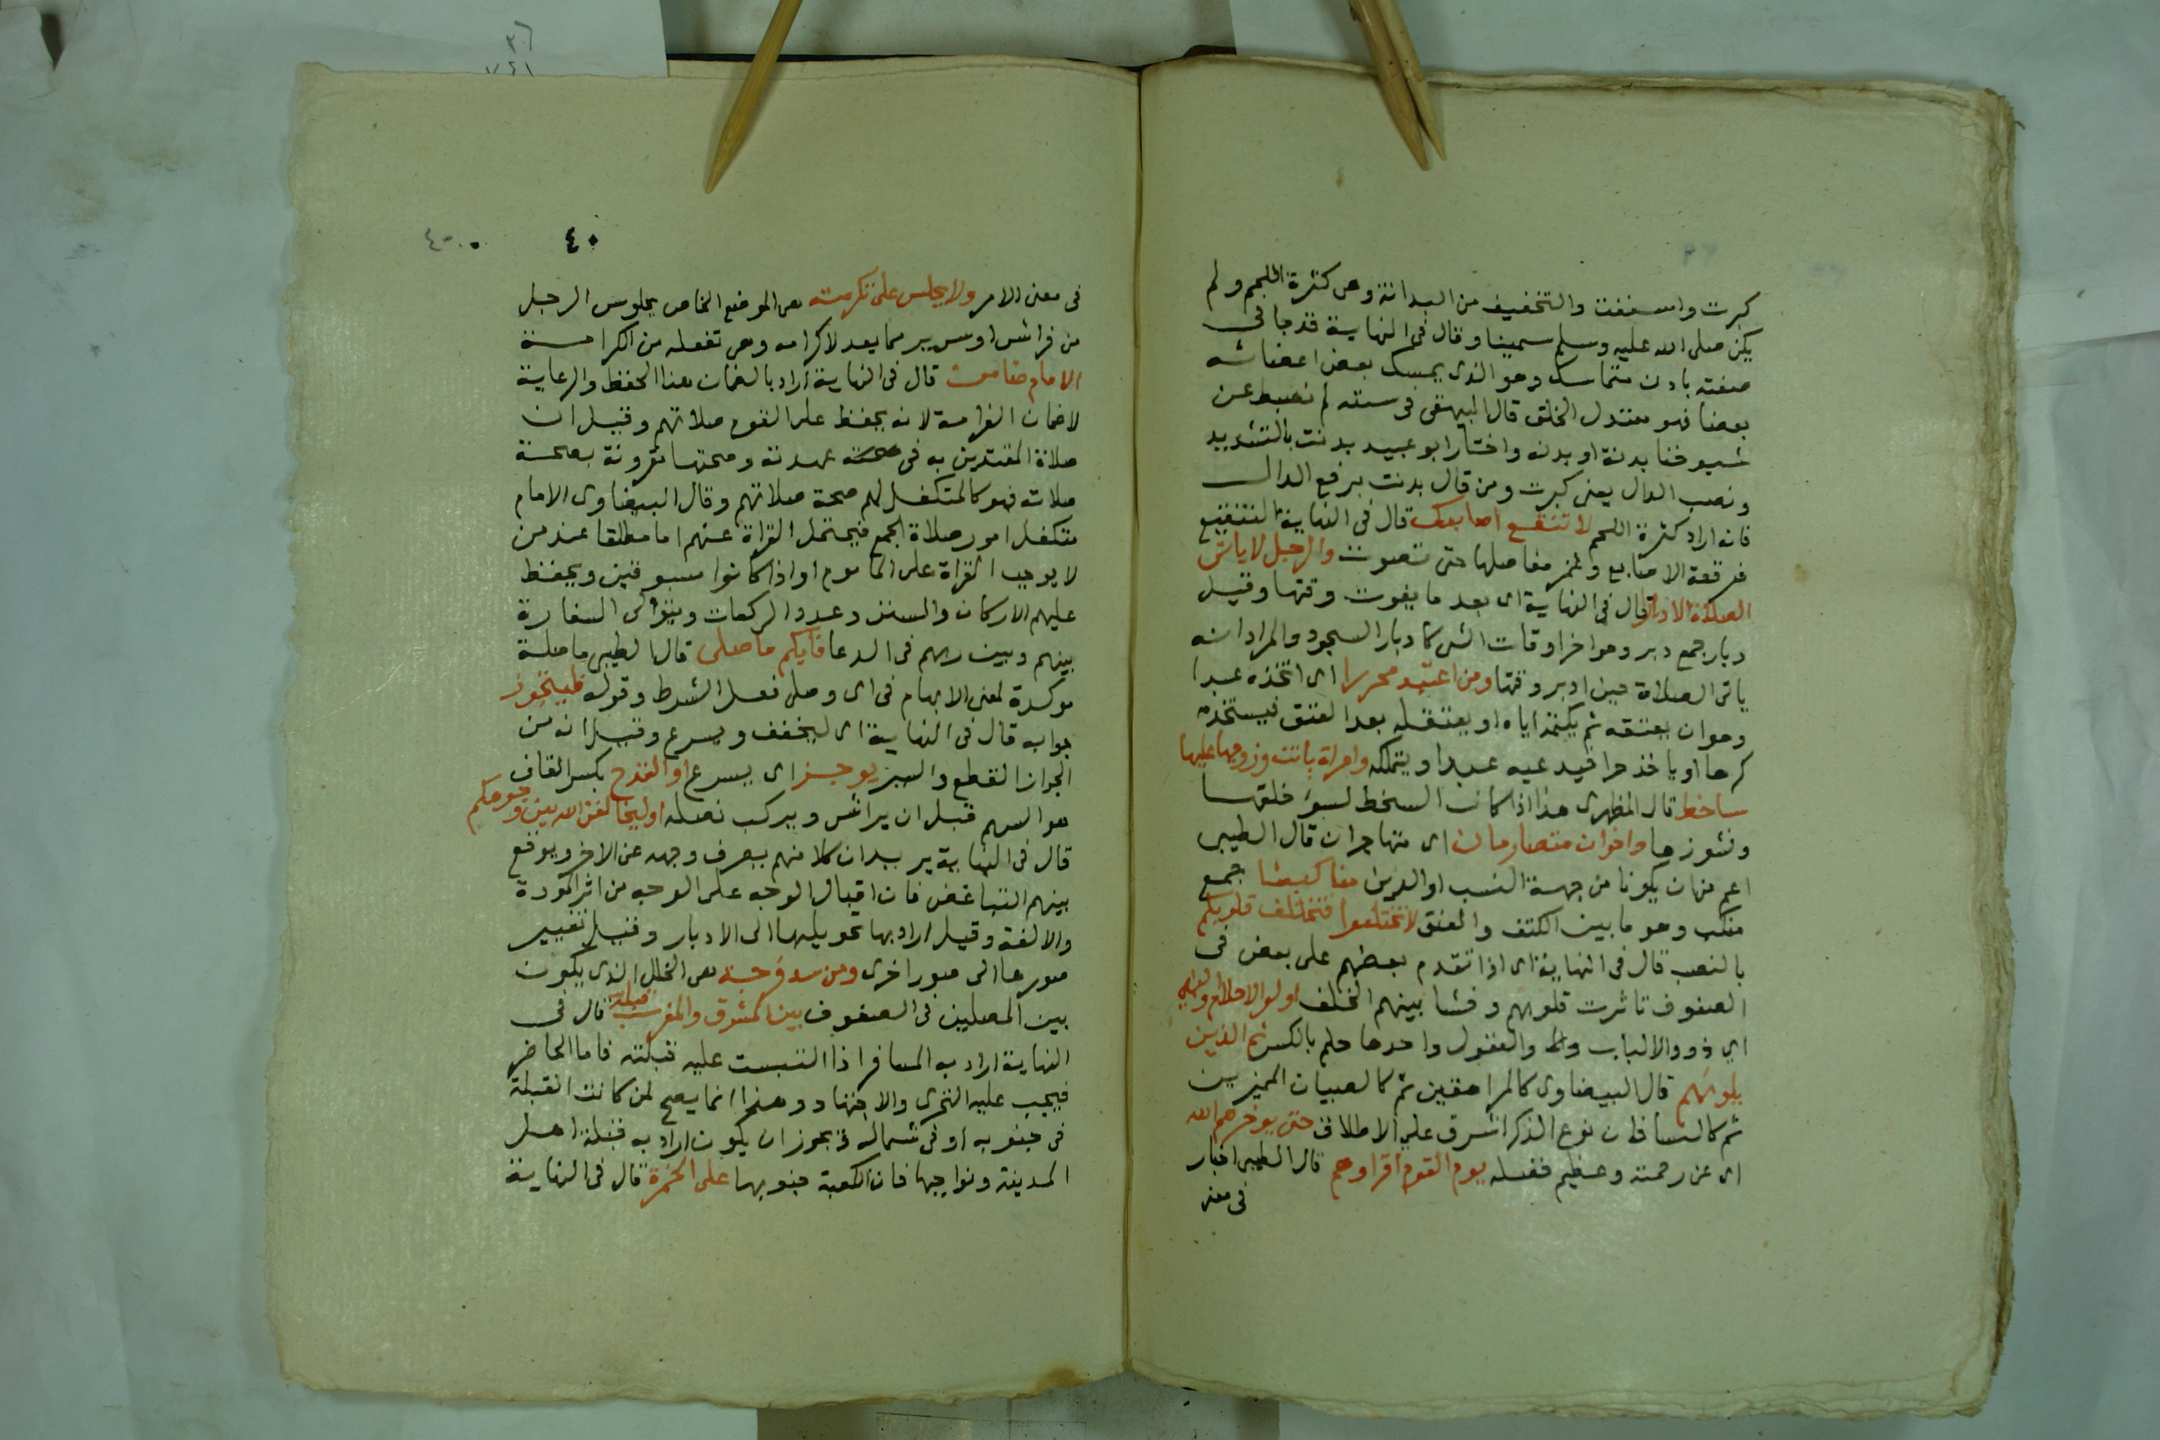 كبرت واسننت والتخفيف من البدانة وهى كثرة اللحم ولم
يكن صلى الله عليه وسلم سمينا وقال فى النهاية قد جا فى
صفته بادن متماسك وهو الذى يمسك بعض اعضائه
بعضا فهو معتدل الخلق قال البيهقى فى سننه لم نضبط عن
شيوخنا بدنة او بدنه واختار ابو عبيد بدنت بالتشديد
ونصب الدال يعنى كبرت ومن قال بدنت برفع الدال
فانه اراد كثرة اللحم لا تفقع اصابعك قال فى النهاية التفقيع
فرقعة الاصابع وغمز مفاصلها حتى تصوت والرجل لا ياتى
الصلاة الا دبارا قال فى النهاية اى بعد ما يفوت وقتها وقيل
دبار جمع دبر وهو اخر اوقات الشى كادبار السجود والمراد انه
ياتى الصلاة حين ادبر وقتها ومن اعتبد محررا اى اتخذه عبدا
وهو ان يعتقه ثم يكتمه اياه او يعتقله بعد العتق فيستخدمه
كرها او ياخذ حرا فيدعيه عبدا ويتملكه وامراة باتت وزوجها عليها
ساخط قال المظهرى هذا اذا كان السخط لسوء خلقها
ونشوزها واخوان متصارمان اى متهاجران قال الطيبى
اعم من ان يكونا من جهة النسب او الدين مناكبنا جمع
منكب وهو ما بين الكتف والعنق لا تختلفوا فتختلف قلوبكم
بالنصب قال فى النهاية اى اذا تقدم بعضهم على بعض فى
الصفوف تاثرت قلوبهم وفشا بينهم الخلف اولوا الاحلام والنهى
اى ذوو الالباب والعقول واحدها حلم بالكسر ثم الذين
يلونهم قال البيضاوى كالمراهقين ثم كالصبيان المميزين
ثم كالنسا فان نوع الذكر اشرف على الاطلاق حتى يوخرهم الله
اى عن رحمته وعظيم فضله يوم القوم اقراوهم قال الطيبى اخبار
فى معنى
٤٠
فى معنى الامر ولا يجلس على تكرمته هى الموضع الخاص بجلوس الرجل
من فراش او سرير مما يعد لاكرامه وهى تفعله من الكرامة
الامام ضامن قال فى النهاية اراد بالضمان هنا الحفظ والرعاية
لا ضمان الغرامة لانه يحفظ على القوم صلاتهم وقيل ان
صلاة المقتدين به فى عهدته وصحتها مقرونة بصحة
صلاته فهو كالمتكفل لهم صحة صلاتهم وقال البيضاوى الامام
متكفل امور صلاة الجمع فيحتمل القراة عنهم اما مطلقا عند من
لا يوجب القراة على الماموم او اذا كانوا مسبوقين ويحفظ
عليهم الاركان والسنن وعدد الركعات ويتولى السفارة
بينهم وبين ربهم فى الدعا فايكم ما صلى قال الطيبى ما صلة
موكدة لمعنى الابهام فى اى وصلى فعل الشرط وقوله فليتجوز
جوابه قال فى النهاية اى ليخفف ويسرع وقيل انه من
الجواز القطع والسير يوجز اى يسرع او القدح بكسر القاف
هو السهم قبل ان يراش ويركب نصله او ليخالفن الله بين وجوهكم
قال فى النهاية يريد ان كلا منهم يصرف وجهه عن الاخر ويوقع
بينهم التباغض فان اقبال الوجه على الوجه من اثر المودة
والالفة وقيل اراد بها تحويلها الى الادبار وقيل تغيير
صورها الى صور اخرى ومن سد فرجة هى الخلل الذى يكون
بين المصلين فى الصفوف بين المشرق والمغرب قبلة قال فى
النهاية اراد به المسافر اذا التبست عليه قبلته فاما الحاضر
فيجب عليه التحرى والاجتهاد وهذا انما يصح لمن كانت القبلة
فى جنوبه او فى شماله فيجوز ان يكون اراد به قبلة اهل
المدينة ونواحيها فان الكعبة جنوبها على الخمرة قال فى النهاية